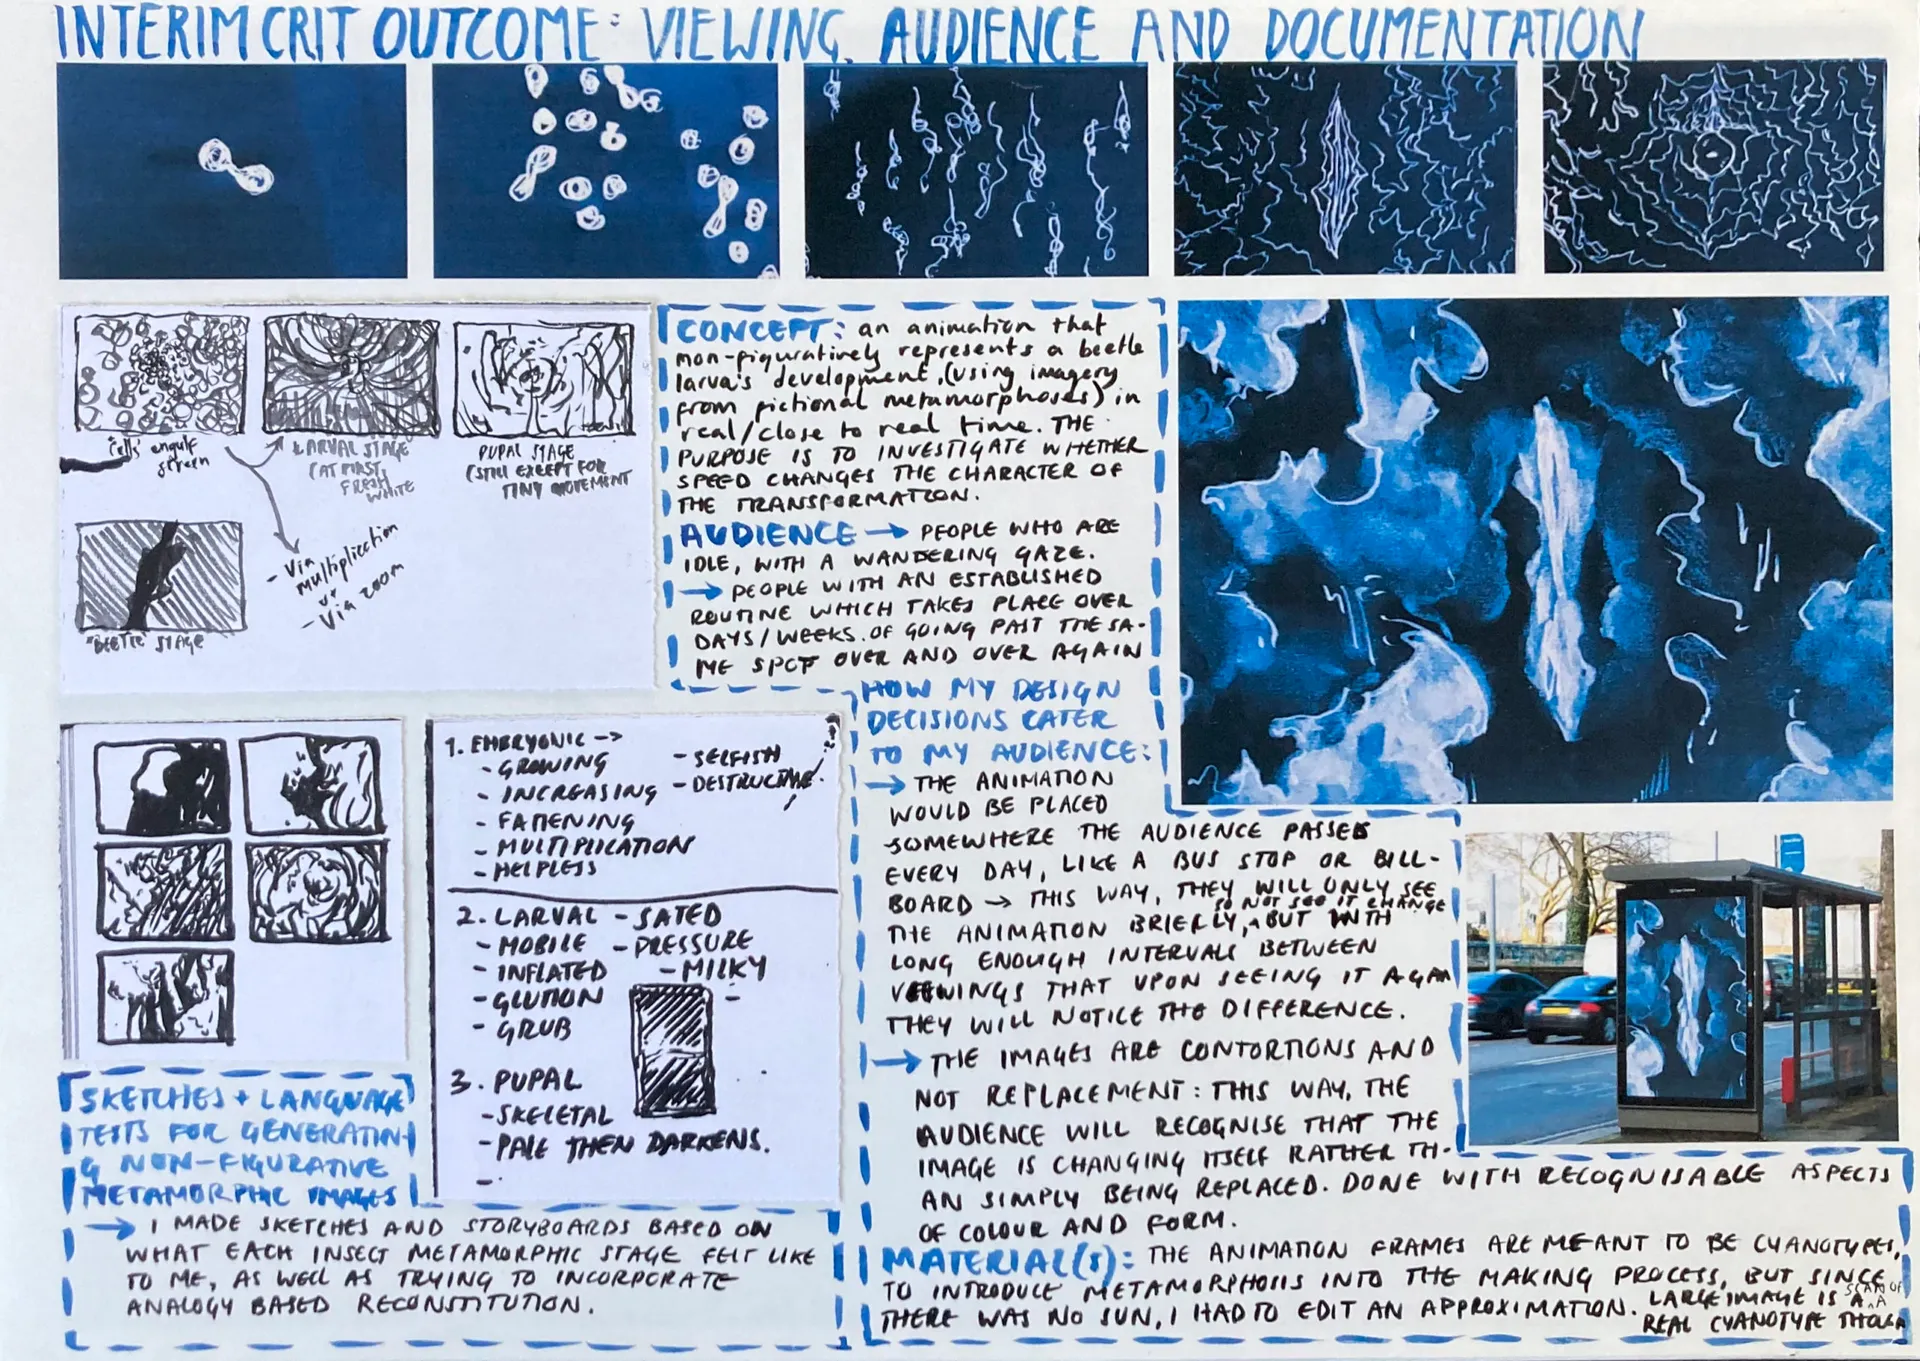 INTERIM CRIT OUTCOME: VIEWING, AUDIENCE AND DOCUMENTATION
"cells" engulf
screen
LARVAL STAGE
(AT FIRST
FRESH
WHITE
PUPAL STAGE
(STILL EXCEPT FOR
TINY MOVEMENT
- Via
multiplication
or
- Via zoom
"BEETLE" STAGE
CONCEPT: an animation that
non-figuratively represents a beetle
larva's development, (using imagery
from fictional metamorphoses) in
real/close to real time. THE
PURPOSE IS TO INVESTIGATE WHETHER
SPEED CHANGES THE CHARACTER OF
THE TRANSFORMATION.
AUDIENCE → PEOPLE WHO ARE
IDLE, WITH A WANDERING GAZE.
→ PEOPLE WITH AN ESTABLISHED
ROUTINE WHICH TAKES PLACE OVER
DAYS/WEEKS. OF GOING PAST THE SA-
ME SPOT OVER AND OVER AGAIN
HOW MY DESIGN
DECISIONS CATER
TO MY AUDIENCE:
→ THE ANIMATION
WOULD BE PLACED
SOMEWHERE THE AUDIENCE PASSES
EVERY DAY, LIKE A BUS STOP OR BILL-
BOARD → THIS WAY, THEY WILL ONLY SEE
SO NOT SEE IT CHANGE
THE ANIMATION BRIEFLY, BUT WITH
LONG ENOUGH INTERVALS BETWEEN
VIEWINGS THAT UPON SEEING IT AGAN
THEY WILL NOTICE THE DIFFERENCE.
→ THE IMAGES ARE CONTORTIONS AND
NOT REPLACEMENT: THIS WAY, THE
AUDIENCE WILL RECOGNISE THAT THE
IMAGE IS CHANGING ITSELF RATHER TH-
AN SIMPLY BEING REPLACED. DONE WITH RECOGNISABLE ASPECTS
OF COLOUR AND FORM.
MATERIAL(S): THE ANIMATION FRAMES ARE MEANT TO BE CYANOTYPES,
TO INTRODUCE METAMORPHOSIS INTO THE MAKING PROCESS, BUT SINCE
THERE WAS NO SUN, I HAD TO EDIT AN APPROXIMATION. LARGE IMAGE IS A SCAN OF A
REAL CYANOTYPE THOUGH
1. EMBRYONIC →
- GROWING
- INCREASING
- FATTENING
- MULTIPLICATION
- HELPLESS
- SELFISH
- DESTRUCTIVE!
2. LARVAL
- MOBILE
- INFLATED
- GLUTTON
- GRUB
- SATED
- PRESSURE
- MILKY
-
3. PUPAL
- SKELETAL
- PALE THEN DARKENS.
-
SKETCHES + LANGUAGE
TESTS FOR GENERATIN-
G NON-FIGURATIVE
METAMORPHIC IMAGES
→ I MADE SKETCHES AND STORYBOARDS BASED ON
WHAT EACH INSECT METAMORPHIC STAGE FELT LIKE
TO ME, AS WELL AS TRYING TO INCORPORATE
ANALOGY BASED RECONSTITUTION.